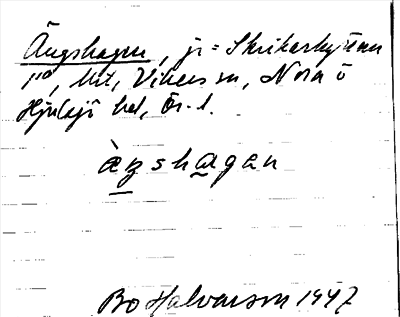 Ängshagen, jr = Skrikarhyttan
1/8, Mit, Vikers sn, Nora o
Hjulsjö bd, Ör. l.
àŋshagan
Bo Halvarson 1947